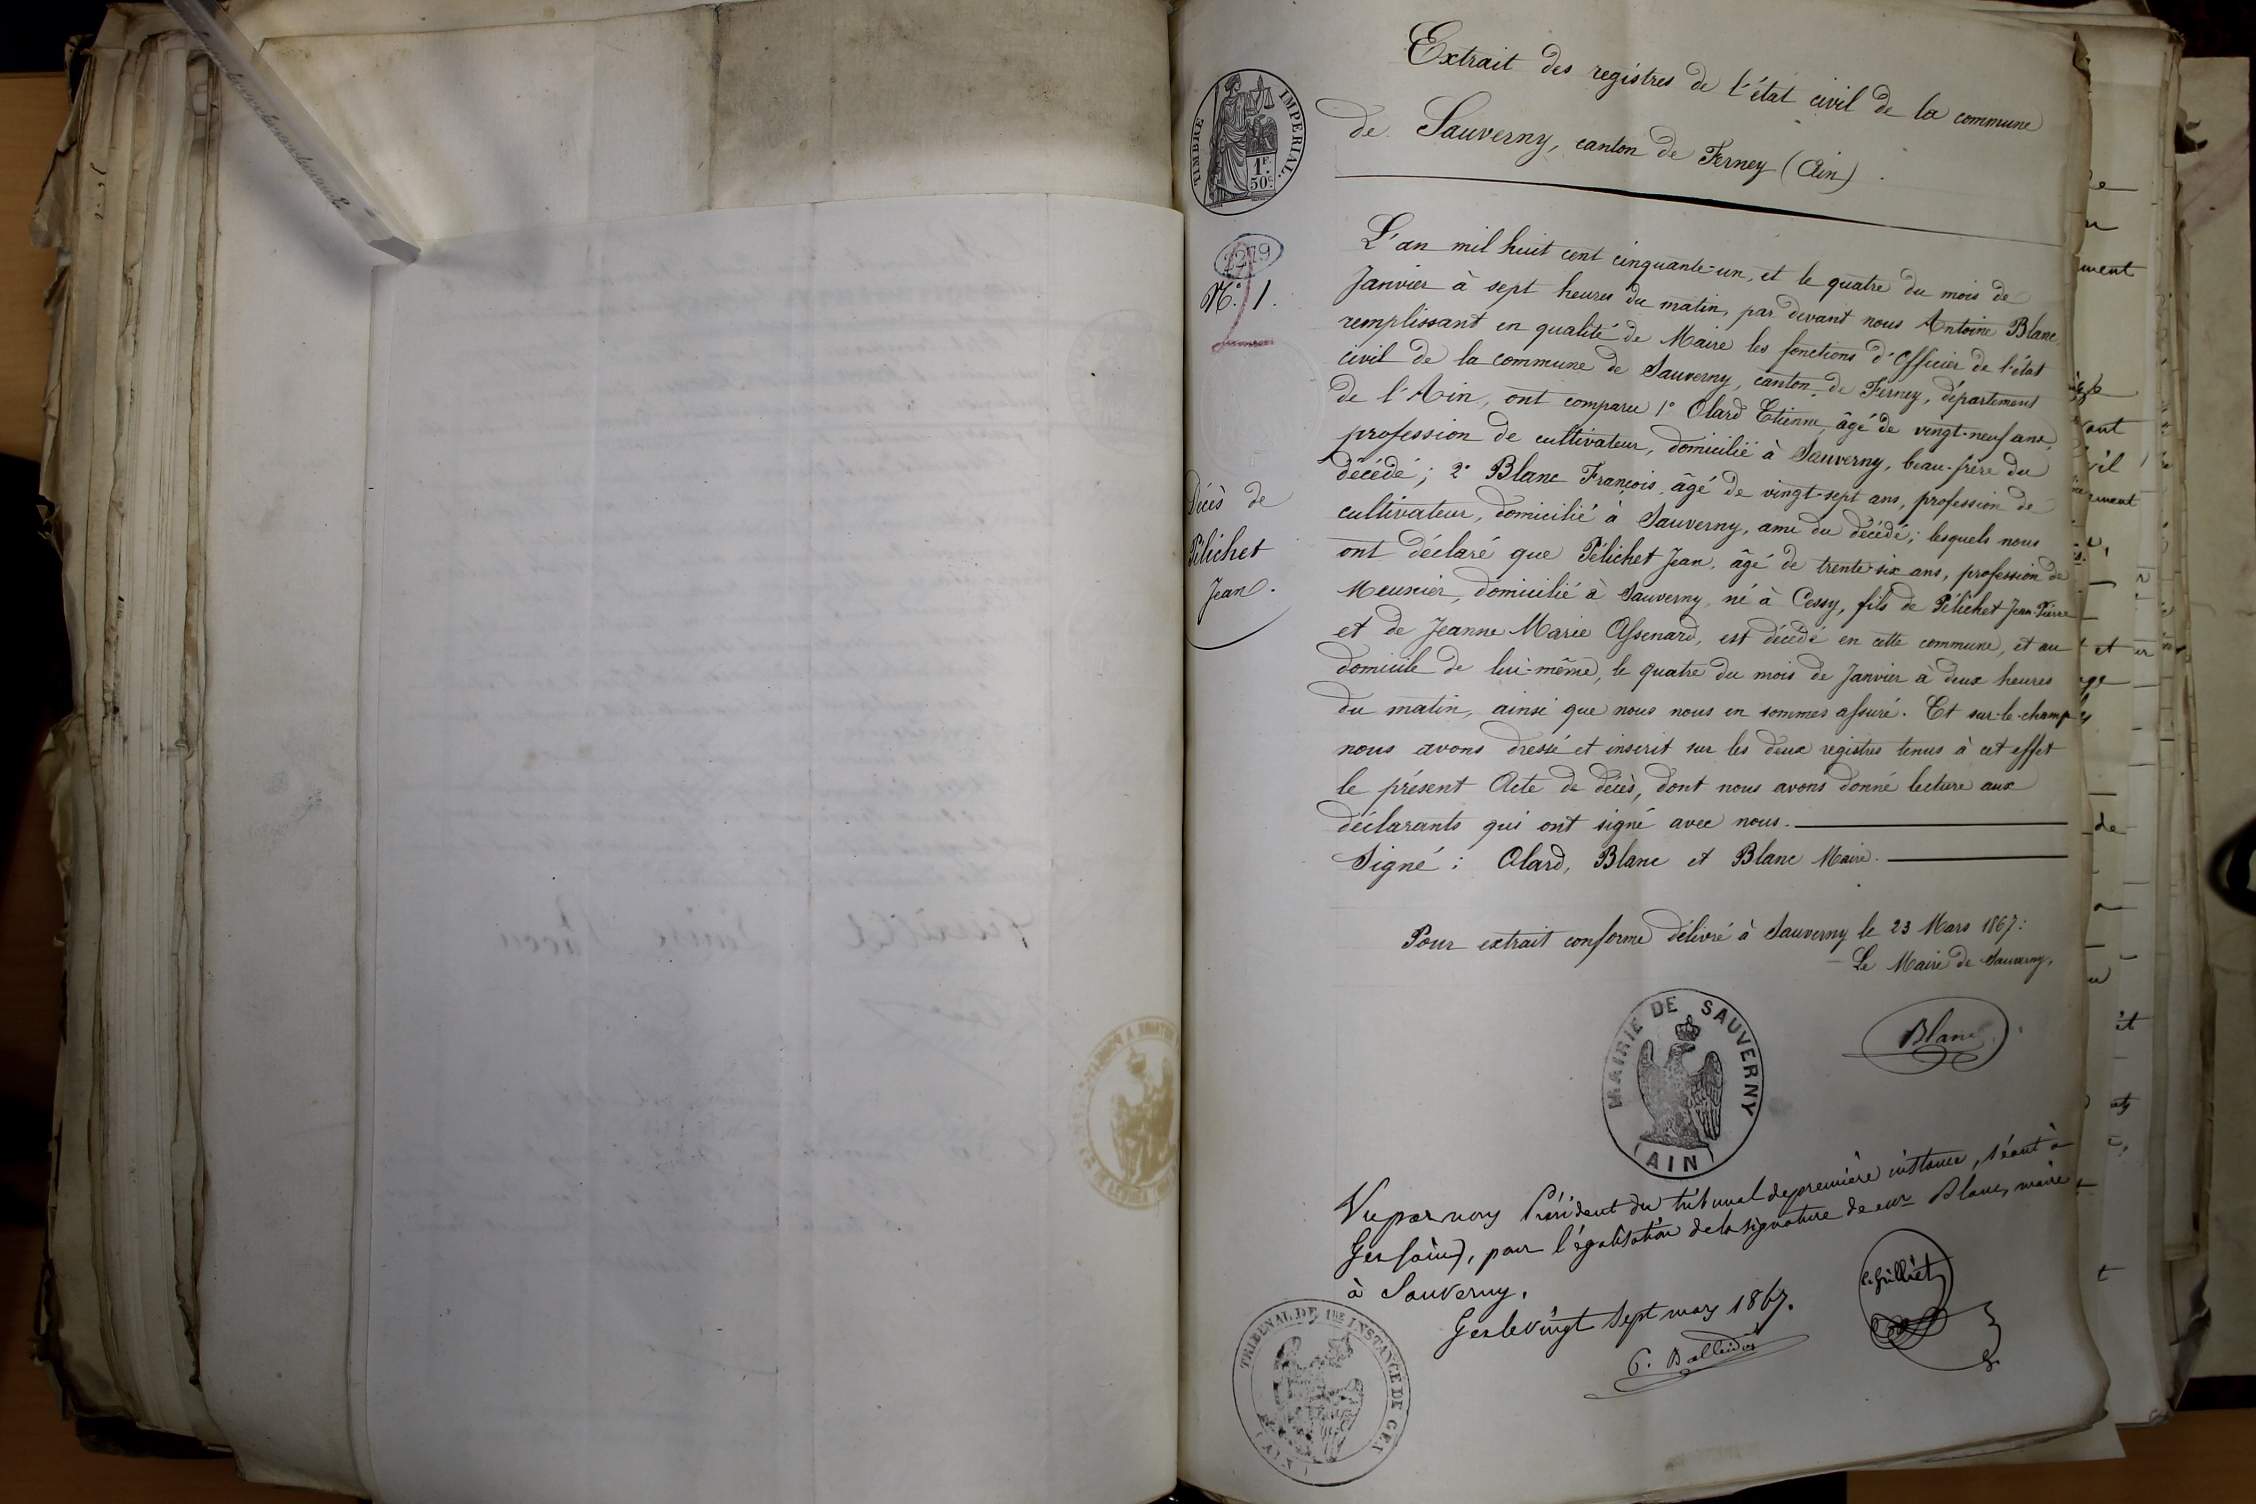 Extrait des registres de l'état civil de la commune
de Sauverny, canton de Ferney (Ain).
TIMBRE IMPERIAL.
1F.
50c
2279
No. 1.
Décès de
Pélichet
Jean.
L'an mil huit cent cinquante-un, et le quatre du mois de
Janvier à sept heures du matin, par devant nous Antoine Blanc,
remplissant en qualité de Maire les fonctions d'Officier de l'état
civil de la commune de Sauverny, canton de Ferney, département
de l'Ain, ont comparu 1° Olard Etienne, âgé de vingt-neuf ans,
profession de cultivateur, domicilié à Sauverny, beau-frère du
décédé; 2° Blanc François, âgé de vingt-sept ans, profession de
cultivateur, domicilié à Sauverny, ami du décédé; lesquels nous
ont déclaré que Pélichet Jean, âgé de trente-six ans, profession de
Meunier, domicilié à Sauverny, né à Cessy, fils de Pélichet Jean-Pierre
et de Jeanne Marie Assenard, est décédé en cette commune, et au
domicile de lui-même, le quatre du mois de Janvier à deux heures
du matin, ainsi que nous nous en sommes assuré. Et sur-le-champ
nous avons dressé et inscrit sur les deux registres tenus à cet effet
le présent Acte de décès, dont nous avons donné lecture aux
déclarants qui ont signé avec nous.
Signé: Olard, Blanc et Blanc Maire.
Pour extrait conforme délivré à Sauverny le 23 Mars 1867:
Le Maire de Sauverny,
Blanc
MAIRIE DE SAUVERNY
(AIN)
Vu par nous Président du tribunal de première instance, séant à
Gex (ain), pour légalisation de la signature de mr Blanc, maire
à Sauverny.
Gex le vingt sept mars 1867.
TRIBUNAL DE 1RE INSTANCE DE GEX
(AIN)